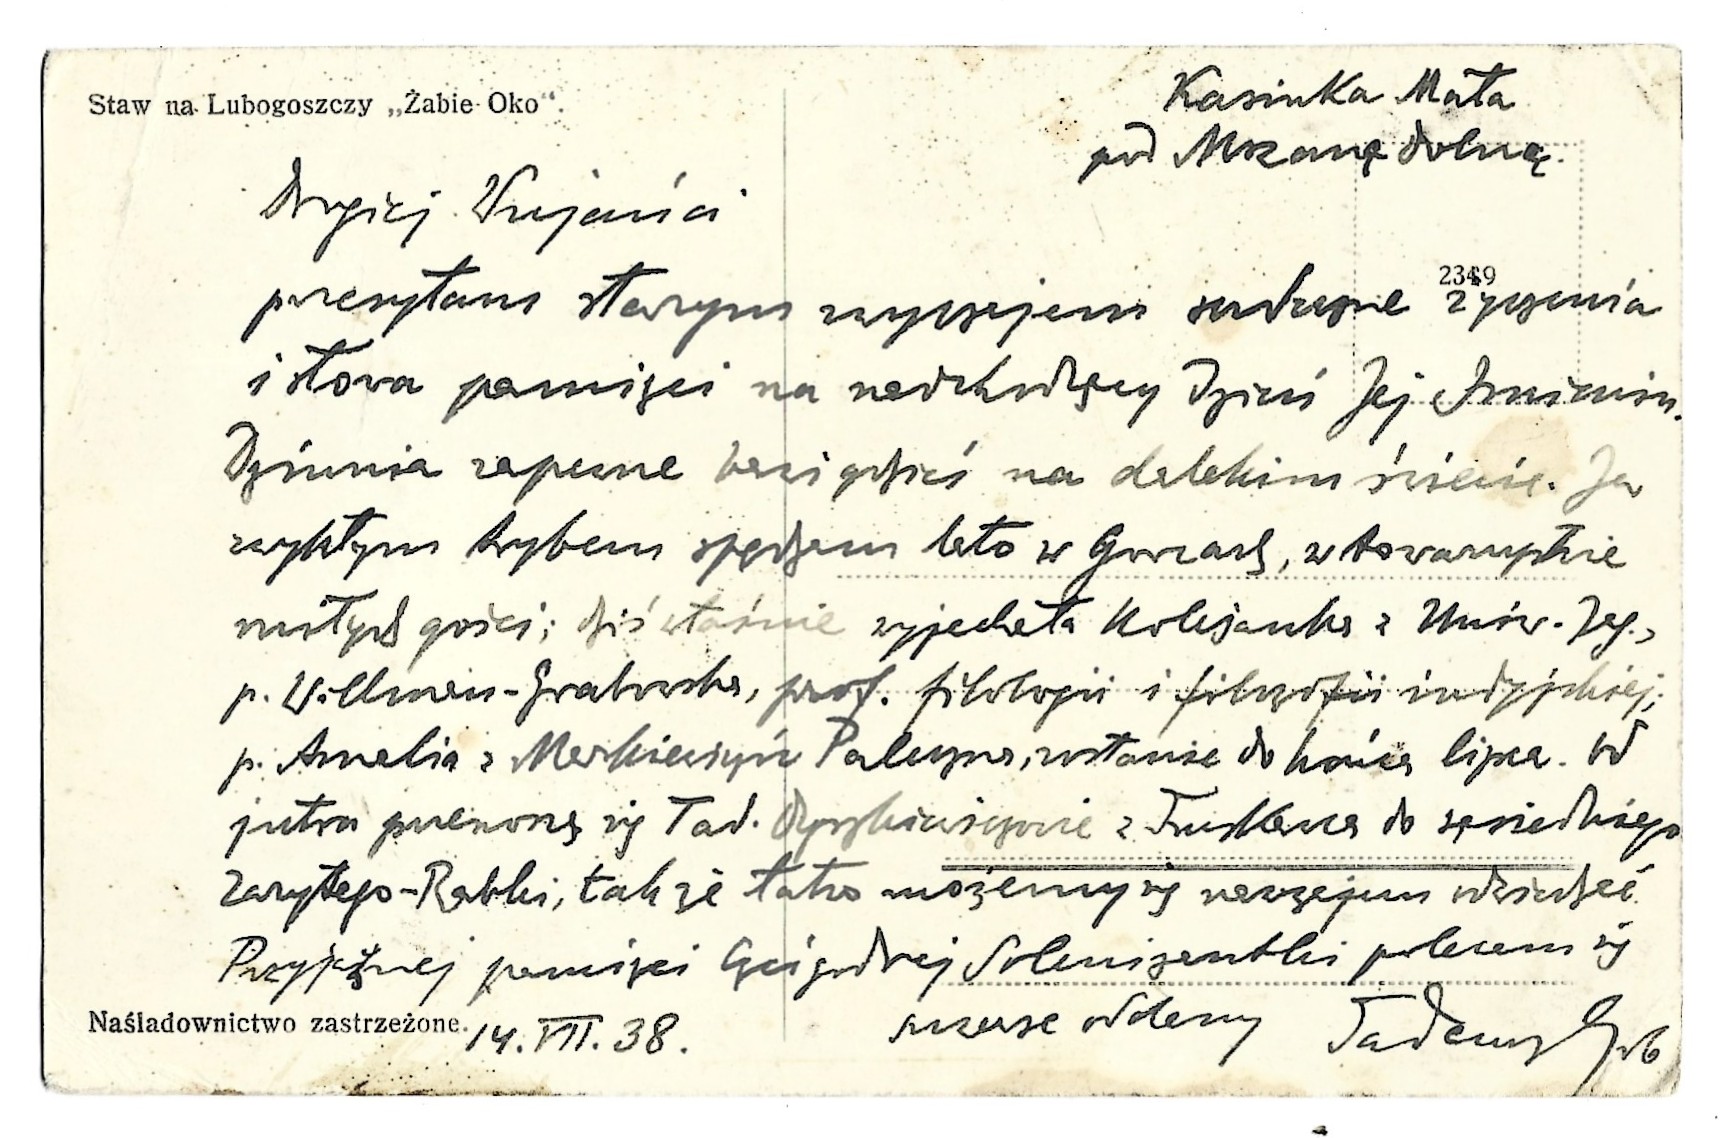 Staw na Lubogoszczy „Żabie Oko“.
Kasinka Mała
pod Mszaną dolną.
Drogiej Wujańci
2349
przesyłam starym zwyczajem serdeczne życzenia
i słowa pamięci na nadchodzący Dzień Jej Imienin.
Dziunia zapewne bawi gdzieś na dalekim świecie. Ja
zwykłym trybem spędzam lato w Gorcach, w towarzystwie
miłych gości; dziś właśnie wyjechała Koleżanka z Uniw. Jag.,
p. Willman-Grabowska, prof. filologii i filozofii indyjskiej;
p. Amelia z Markiewiczów Paleczna, zostanie do końca lipca. Od
jutra przenoszą się Tad. z Truskawca do sąsiedniego
Zarytego-Rabki, tak że łatwo możemy się nawzajem odwiedzać
Przyjaznej pamięci Czcigodnej Solenizantki polecam się
szczerze oddany Tadeusz Grb
Naśladownictwo zastrzeżone.
14. VII. 38.